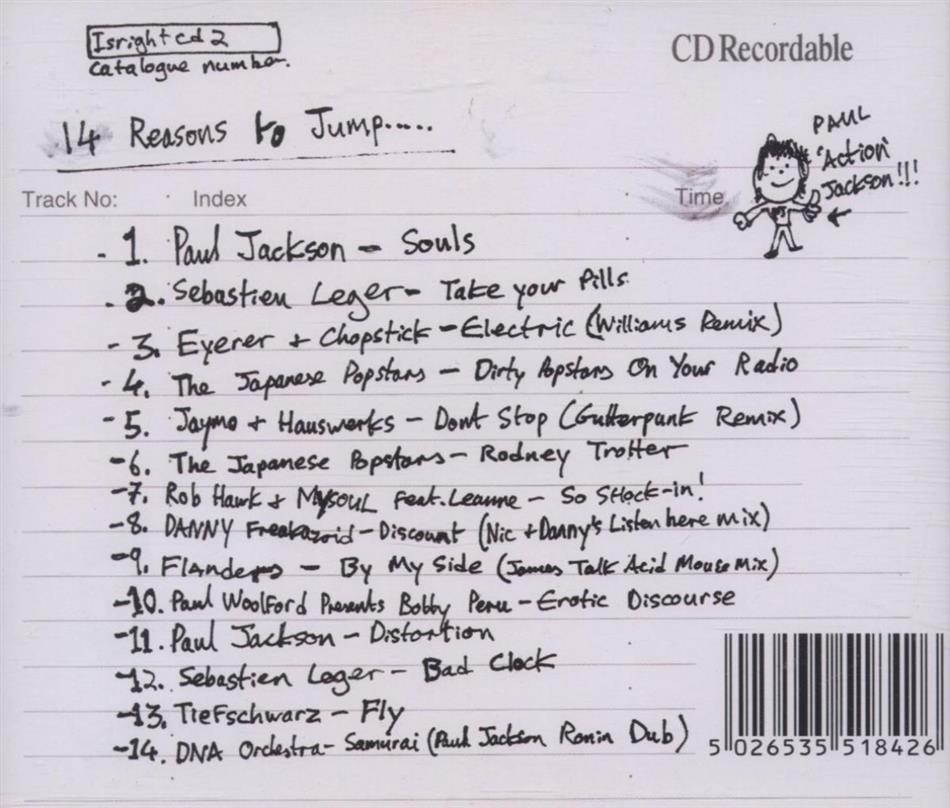 Isrightcd2
CD Recordable
Catalogue number.
14 Reasons to Jump.....
PAUL
'Action'
Jackson!!!
Track No:
Index
Time
- 1. Paul Jackson - Souls
- 2. Sebastien Leger - Take your Pills
- 3. Eyerer + Chopstick - Electric (Williams Remix)
- 4. The Japanese Popstars - Dirty Popstars On Your Radio
- 5. Jaymo + Hauswerks - Dont Stop (Gutterpunk Remix)
- 6. The Japanese Popstars - Rodney Trotter
- 7. Rob Hawk + MYSOUL feat. Leanne - So SHock-in!
- 8. DANNY Freakazoid - Discount (Nic + Danny's Listen here mix)
- 9. FlAnders - By My Side (James Talk Acid Mouse Mix)
- 10. Paul Woolford Presents Bobby Peru - Erotic Discourse
- 11. Paul Jackson - Distortion
- 12. Sebastien Leger - Bad Clock
- 13. Tiefschwarz - Fly
- 14. DNA Orchestra - Samurai (Paul Jackson Ronin Dub)
5 026535 518426